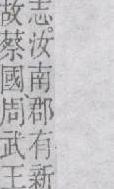 志。汝南郡有新
故蔡國、周武王